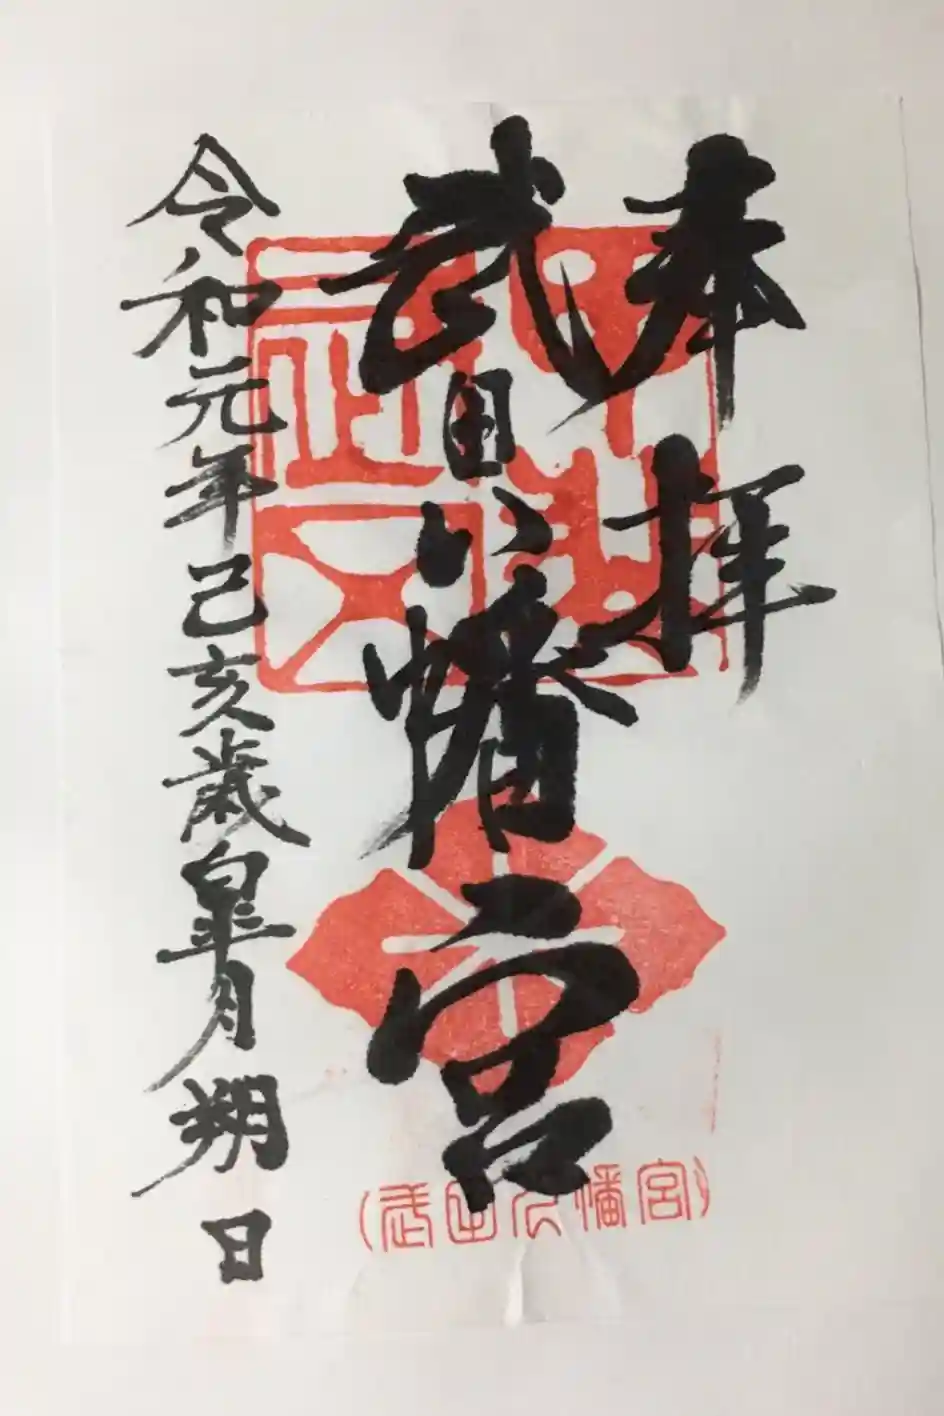 奉拝
武田八幡宮
令和元年己亥歳皐月朔日
(武田八幡宮)